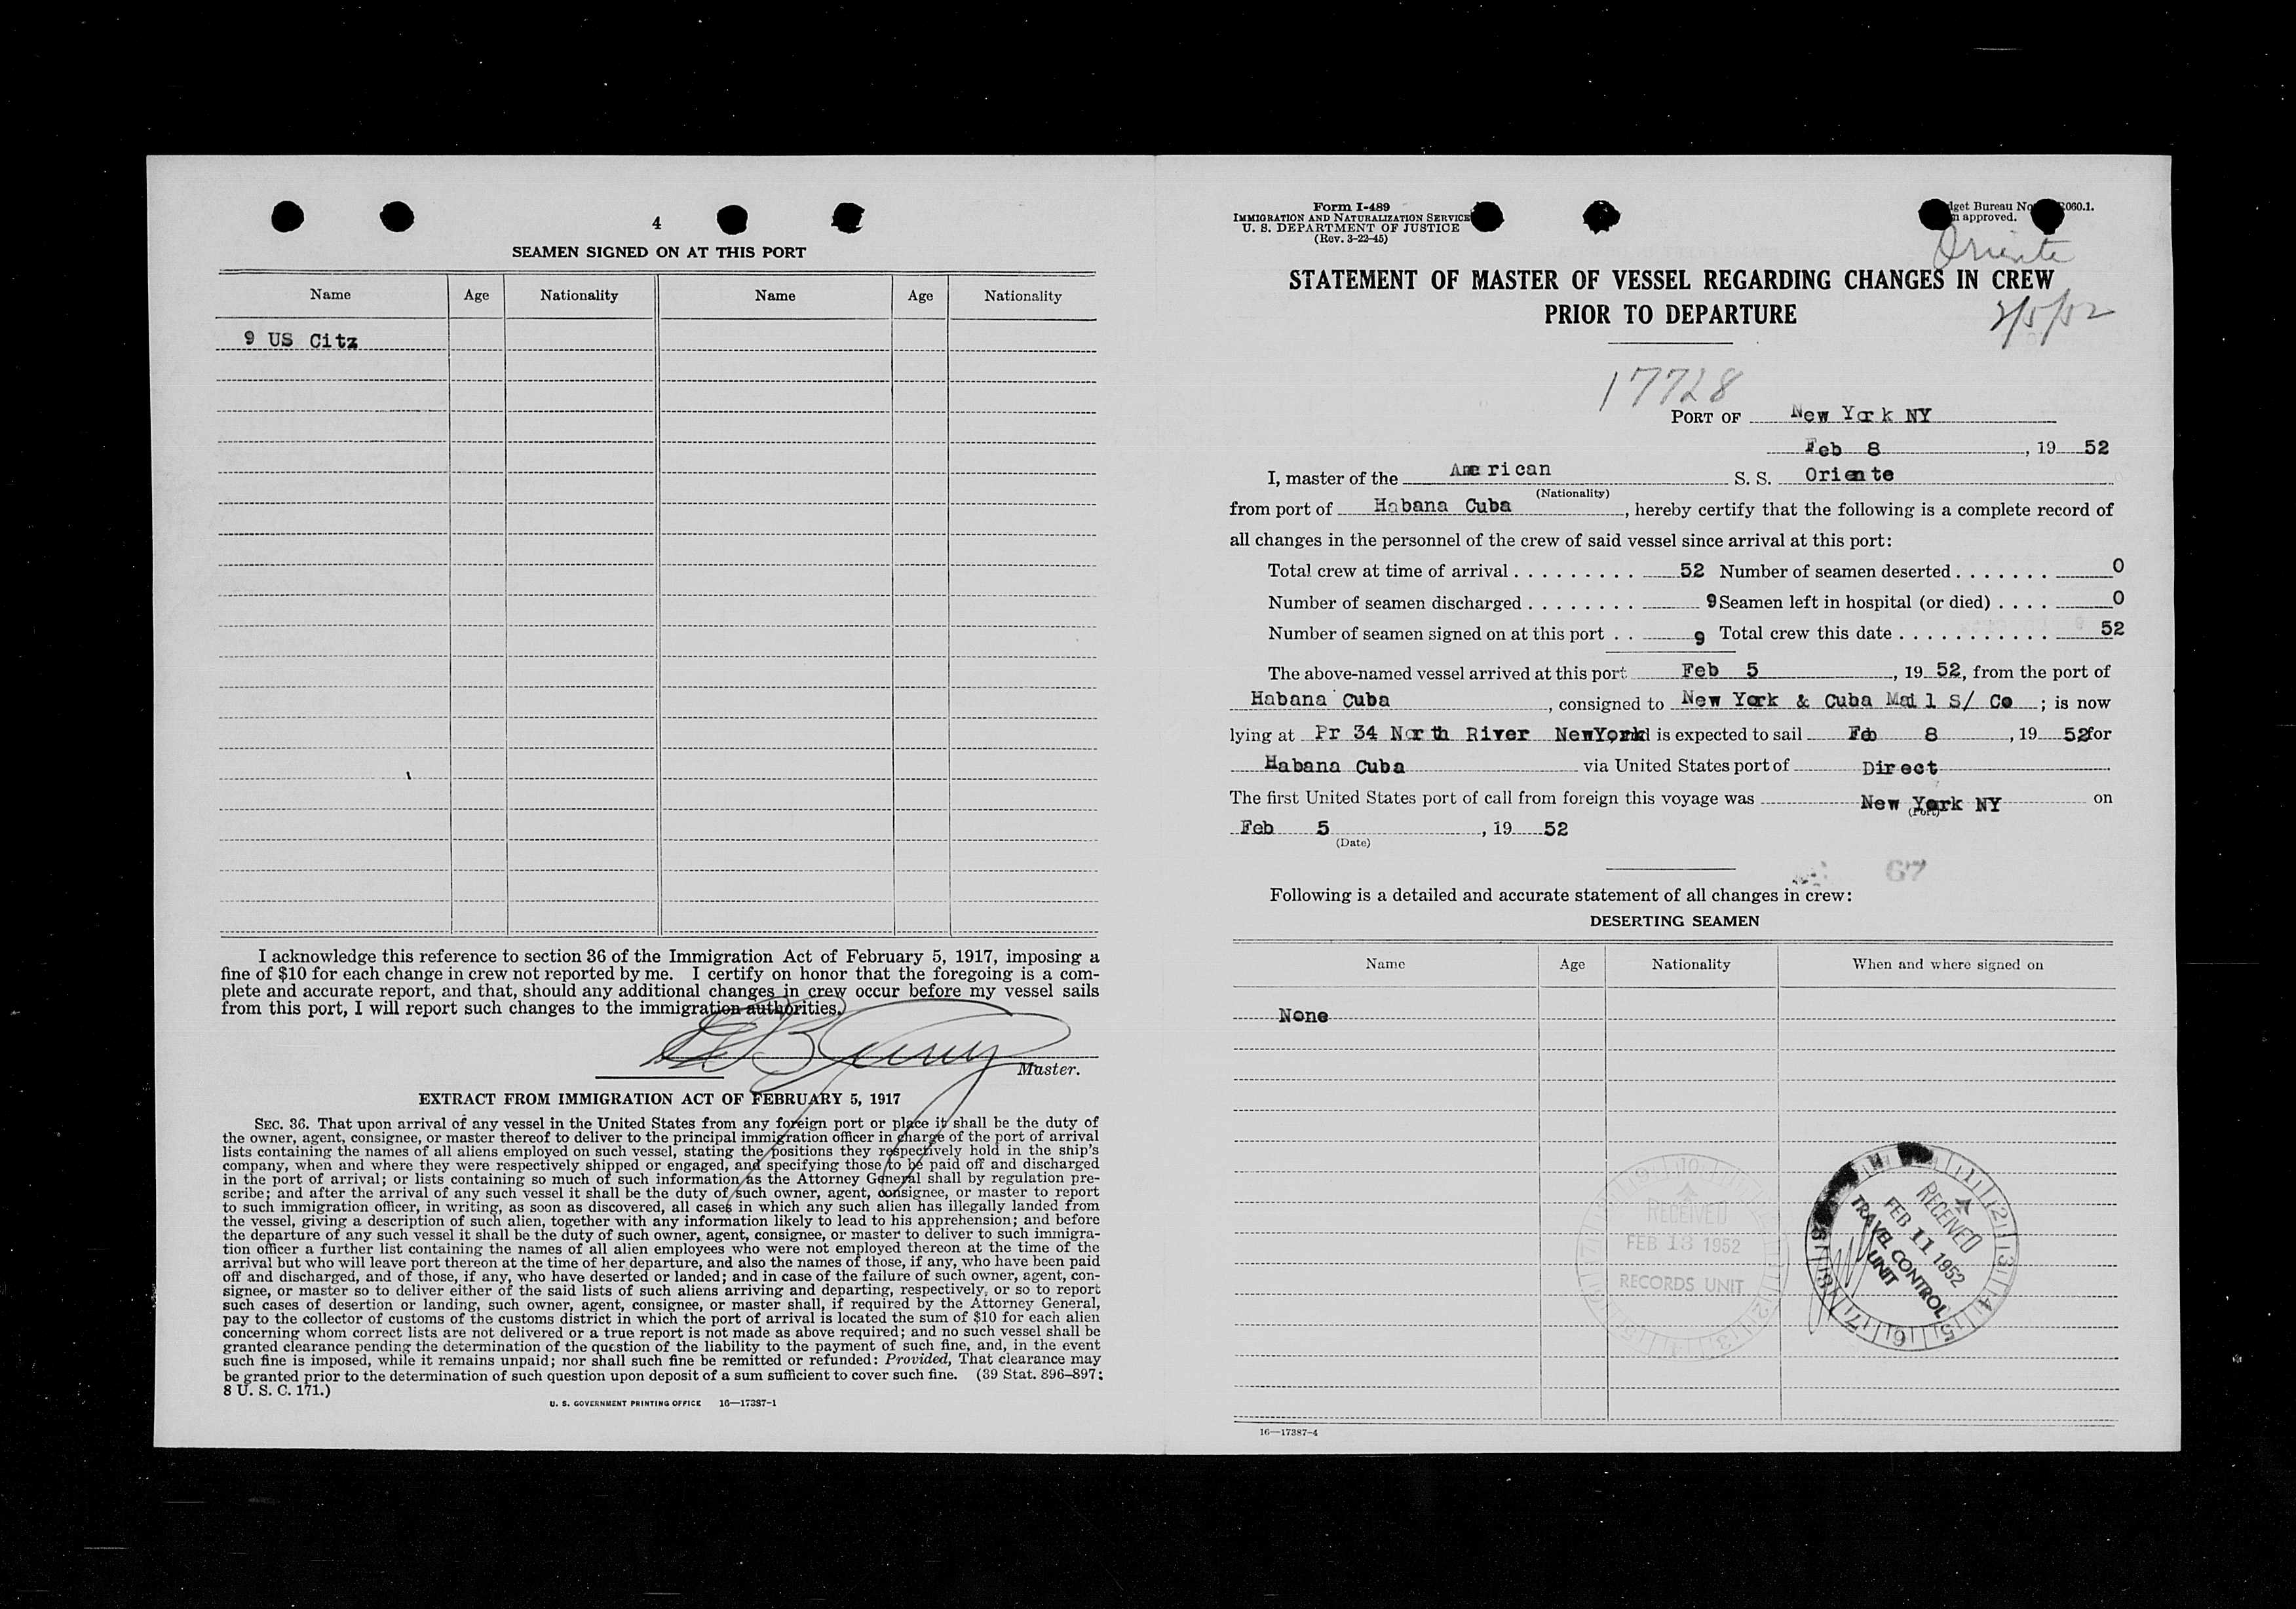 4
SEAMEN SIGNED ON AT THIS PORT
Name Age Nationality Name Age Nationality
9 US Citz
I acknowledge this reference to section 36 of the Immigration Act of February 5, 1917, imposing a
fine of $10 for each change in crew not reported by me. I certify on honor that the foregoing is a com-
plete and accurate report, and that, should any additional changes in crew occur before my vessel sails
from this port, I will report such changes to the immigration authorities.
Master.
EXTRACT FROM IMMIGRATION ACT OF FEBRUARY 5, 1917
SEC. 36. That upon arrival of any vessel in the United States from any foreign port or place it shall be the duty of
the owner, agent, consignee, or master thereof to deliver to the principal immigration officer in charge of the port of arrival
lists containing the names of all aliens employed on such vessel, stating the positions they respectively hold in the ship's
company, when and where they were respectively shipped or engaged, and specifying those to be paid off and discharged
in the port of arrival; or lists containing so much of such information as the Attorney General shall by regulation pre-
scribe; and after the arrival of any such vessel it shall be the duty of such owner, agent, consignee, or master to report
to such immigration officer, in writing, as soon as discovered, all cases in which any such alien has illegally landed from
the vessel, giving a description of such alien, together with any information likely to lead to his apprehension; and before
the departure of any such vessel it shall be the duty of such owner, agent, consignee, or master to deliver to such immigra-
tion officer a further list containing the names of all alien employees who were not employed thereon at the time of the
arrival but who will leave port thereon at the time of her departure, and also the names of those, if any, who have been paid
off and discharged, and of those, if any, who have deserted or landed; and in case of the failure of such owner, agent, con-
signee, or master so to deliver either of the said lists of such aliens arriving and departing, respectively, or so to report
such cases of desertion or landing, such owner, agent, consignee, or master shall, if required by the Attorney General,
pay to the collector of customs of the customs district in which the port of arrival is located the sum of $10 for each alien
concerning whom correct lists are not delivered or a true report is not made as above required; and no such vessel shall be
granted clearance pending the determination of the question of the liability to the payment of such fine, and, in the event
such fine is imposed, while it remains unpaid; nor shall such fine be remitted or refunded: Provided, That clearance may
be granted prior to the determination of such question upon deposit of a sum sufficient to cover such fine. (39 Stat. 896-897;
8 U. S. C. 171.)
U. S. GOVERNMENT PRINTING OFFICE 16—17387-1
Form I-489
IMMIGRATION AND NATURALIZATION SERVICE
U. S. DEPARTMENT OF JUSTICE
(Rev. 3-22-45)
dget Bureau No. 060.1.
approved.
Oriente
STATEMENT OF MASTER OF VESSEL REGARDING CHANGES IN CREW
PRIOR TO DEPARTURE
2/5/52
17728
PORT OF New York NY
Feb 8, 19 52
I, master of the American S. S. Oriente
(Nationality)
from port of Habana Cuba, hereby certify that the following is a complete record of
all changes in the personnel of the crew of said vessel since arrival at this port:
Total crew at time of arrival . . . . . . . . . 52 Number of seamen deserted . . . . . . . 0
Number of seamen discharged . . . . . . . . 9 Seamen left in hospital (or died) . . . . 0
Number of seamen signed on at this port . . 9 Total crew this date . . . . . . . . . . . 52
The above-named vessel arrived at this port Feb 5, 19 52, from the port of
Habana Cuba, consigned to New York & Cuba Mail S/ Co; is now
lying at Pr 34 North River NewYork and is expected to sail Feb 8, 19 52 for
Habana Cuba via United States port of Direct
The first United States port of call from foreign this voyage was New York NY on
(Port)
Feb 5, 19 52
(Date)
67
Following is a detailed and accurate statement of all changes in crew:
DESERTING SEAMEN
Name Age Nationality When and where signed on
None
RECEIVED
FEB 13 1952
RECORDS UNIT
RECEIVED
FEB 11 1952
TRAVEL CONTROL
UNIT
16—17387-4